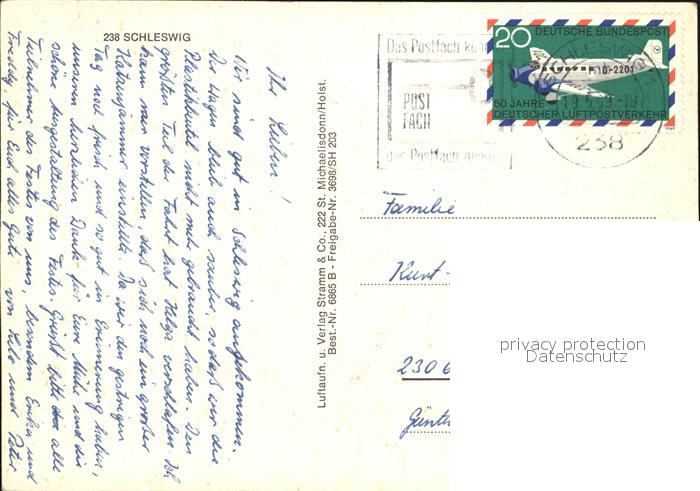 238 SCHLESWIG
Ihr Lieben!
Wir sind gut in Schleswig angekommen.
Der Wagen blieb auch sauber, so daß wir die
Plastikbeutel nicht mehr gebraucht haben. Den
größten Teil der Fahrt hat Helga verschlafen. Ich
kann mir vorstellen, daß sich noch ein großer
Katzenjammer einstellte. Da wir den gestrigen
Tag noch frisch und so gut in Erinnerung haben,
unseren herzlichen Dank für Eure Mühe und die
schöne Ausgestaltung des Festes. Grüßt bitte alle
Teilnehmer des Festes von uns, besonders Erika und
Freddy, für Euch alles Gute von Lilo und Peter
Luftaufn. u. Verlag Stramm & Co., 222 St. Michaelisdonn/Holst.
Best.-Nr. 6865 B - Freigabe-Nr. 3698/SH 203
Das Postfach
POST
FACH
das Postfach
20 DEUTSCHE BUNDESPOST
D-2201
50 JAHRE
DEUTSCHER LUFTPOSTVERKEHR
1969
SCHLESWIG
238
Familie
Kurt-
2306
Günth
privacy protection
Datenschutz